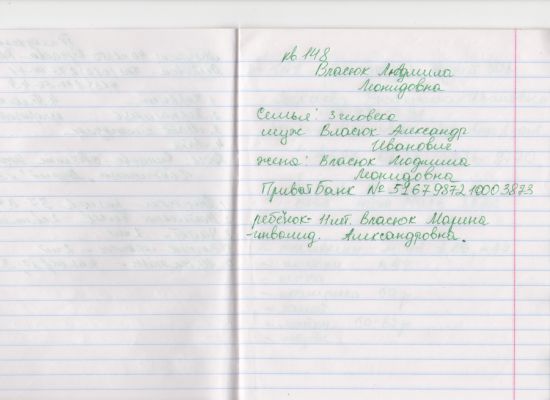 кв 148
Власюк Людмила
Леонидовна
Семья: 3 человека
муж Власюк Александр
Иванович
жена: Власюк Людмила
Леонидовна
ПриватБанк № 5167987210003873
ребёнок - 11 лет. Власюк Марина
- инвалид. Александровна.